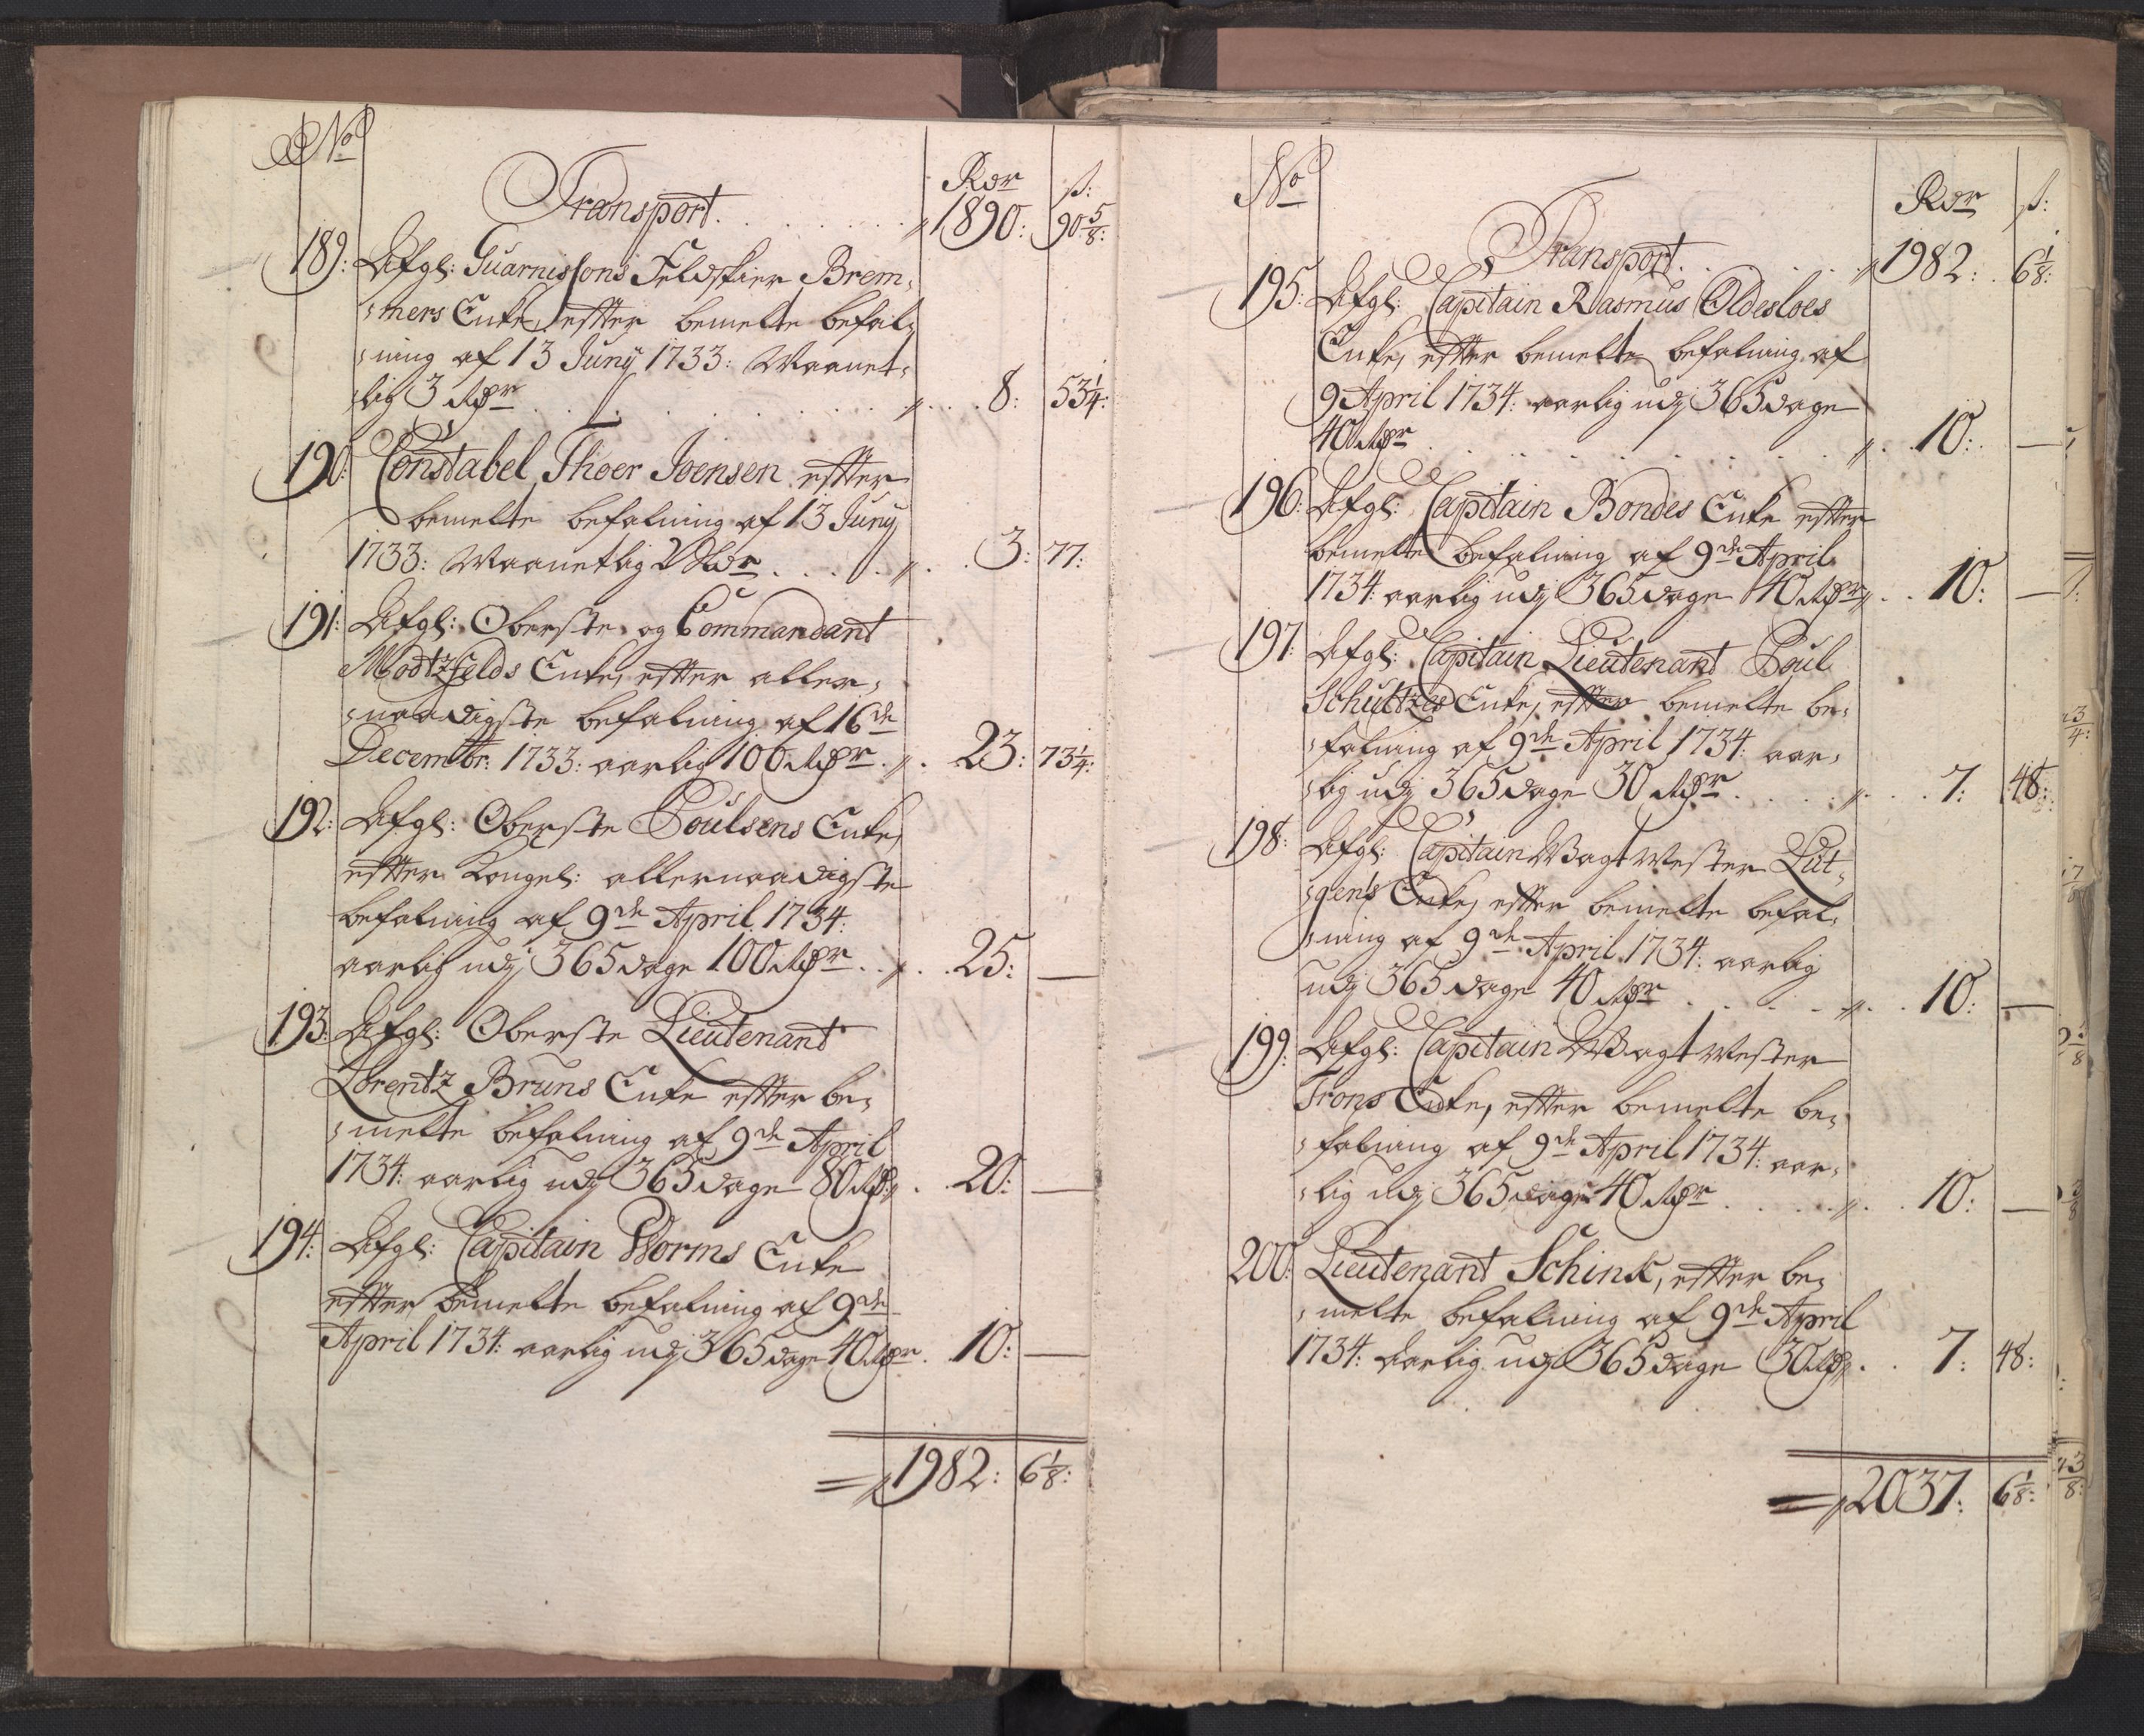 No
Rdr ß:
Transport . . . . . . . 1890: 90 5/8:
189: Afgl: Guarnisons Feldskier Brem¸
¸mers Enke, efter bemelte befal¸
¸ning af 13 Juny 1733: Maanet¸
¸lig 3 Rdr . . . . . . . 8: 53 1/4:
190: Constabel Thoer Joensen efter
bemelte befalning af 13 Juny
1733: Maanetlig 2 Rdr . . . . . 3: 77:
191: Afgl: Oberste og Commandant
Modtzfelds Enke, efter aller¸
¸naadigste befalning af 16de
Decembr: 1733: aarlig 100 Rdr . . 23: 73 1/4:
192: Afgl: Oberste Poulsens Enke,
efter Kongel: allernaadigste
befalning af 9de April 1734:
aarlig udj 365 dage 100 Rdr . . . 25: —
193: Afgl: Oberste Lieutenant
Lorentz Bruns Enke efter be¸
¸melte befalning af 9de April
1734: aarlig udj 365 dage 80 Rdr . 20: —
194: Afgl: Capitain Worms Enke
efter bemelte befalning af 9de
April 1734: aarlig udj 365 dage 40 Rdr . 10: —
1982: 6 1/8:
No
Rdr ß:
Transport . . . . . 1982: 6 1/8:
195: Afgl: Capitain Rasmus Oldesloes
Enke, efter bemelte befalning af
9 April 1734: aarlig udj 365 dage
40 Rdr . . . . . . . 10: —
196: Afgl: Capitain Bondes Enke efter
bemelte befalning af 9de April
1734: aarlig udj 365 dage 40 Rdr . . 10: —
197: Afgl: Capitain Lieutenant Poul
Schultzes Enke, efter bemelte be¸
¸falning af 9de April 1734: aar¸
¸lig udj 365 dage 30 Rdr . . . . . 7: 48:
198: Afgl: Capitain Wagtmester Lüt¸
¸gens Enke, efter bemelte befal¸
¸ning af 9de April 1734: aarlig
udj 365 dage 40 Rdr . . . . . 10: —
199: Afgl: Capitain Wagtmester
Trons Enke, efter bemelte be¸
¸falning af 9de April 1734: aar¸
¸lig udj 365 dage 40 Rdr . . . . . 10: —
200: Lieutenant Schink, efter be¸
¸melte befalning af 9de April
1734: aarlig udj 365 dage 30 Rdr . . 7: 48:
2037: 6 1/8: